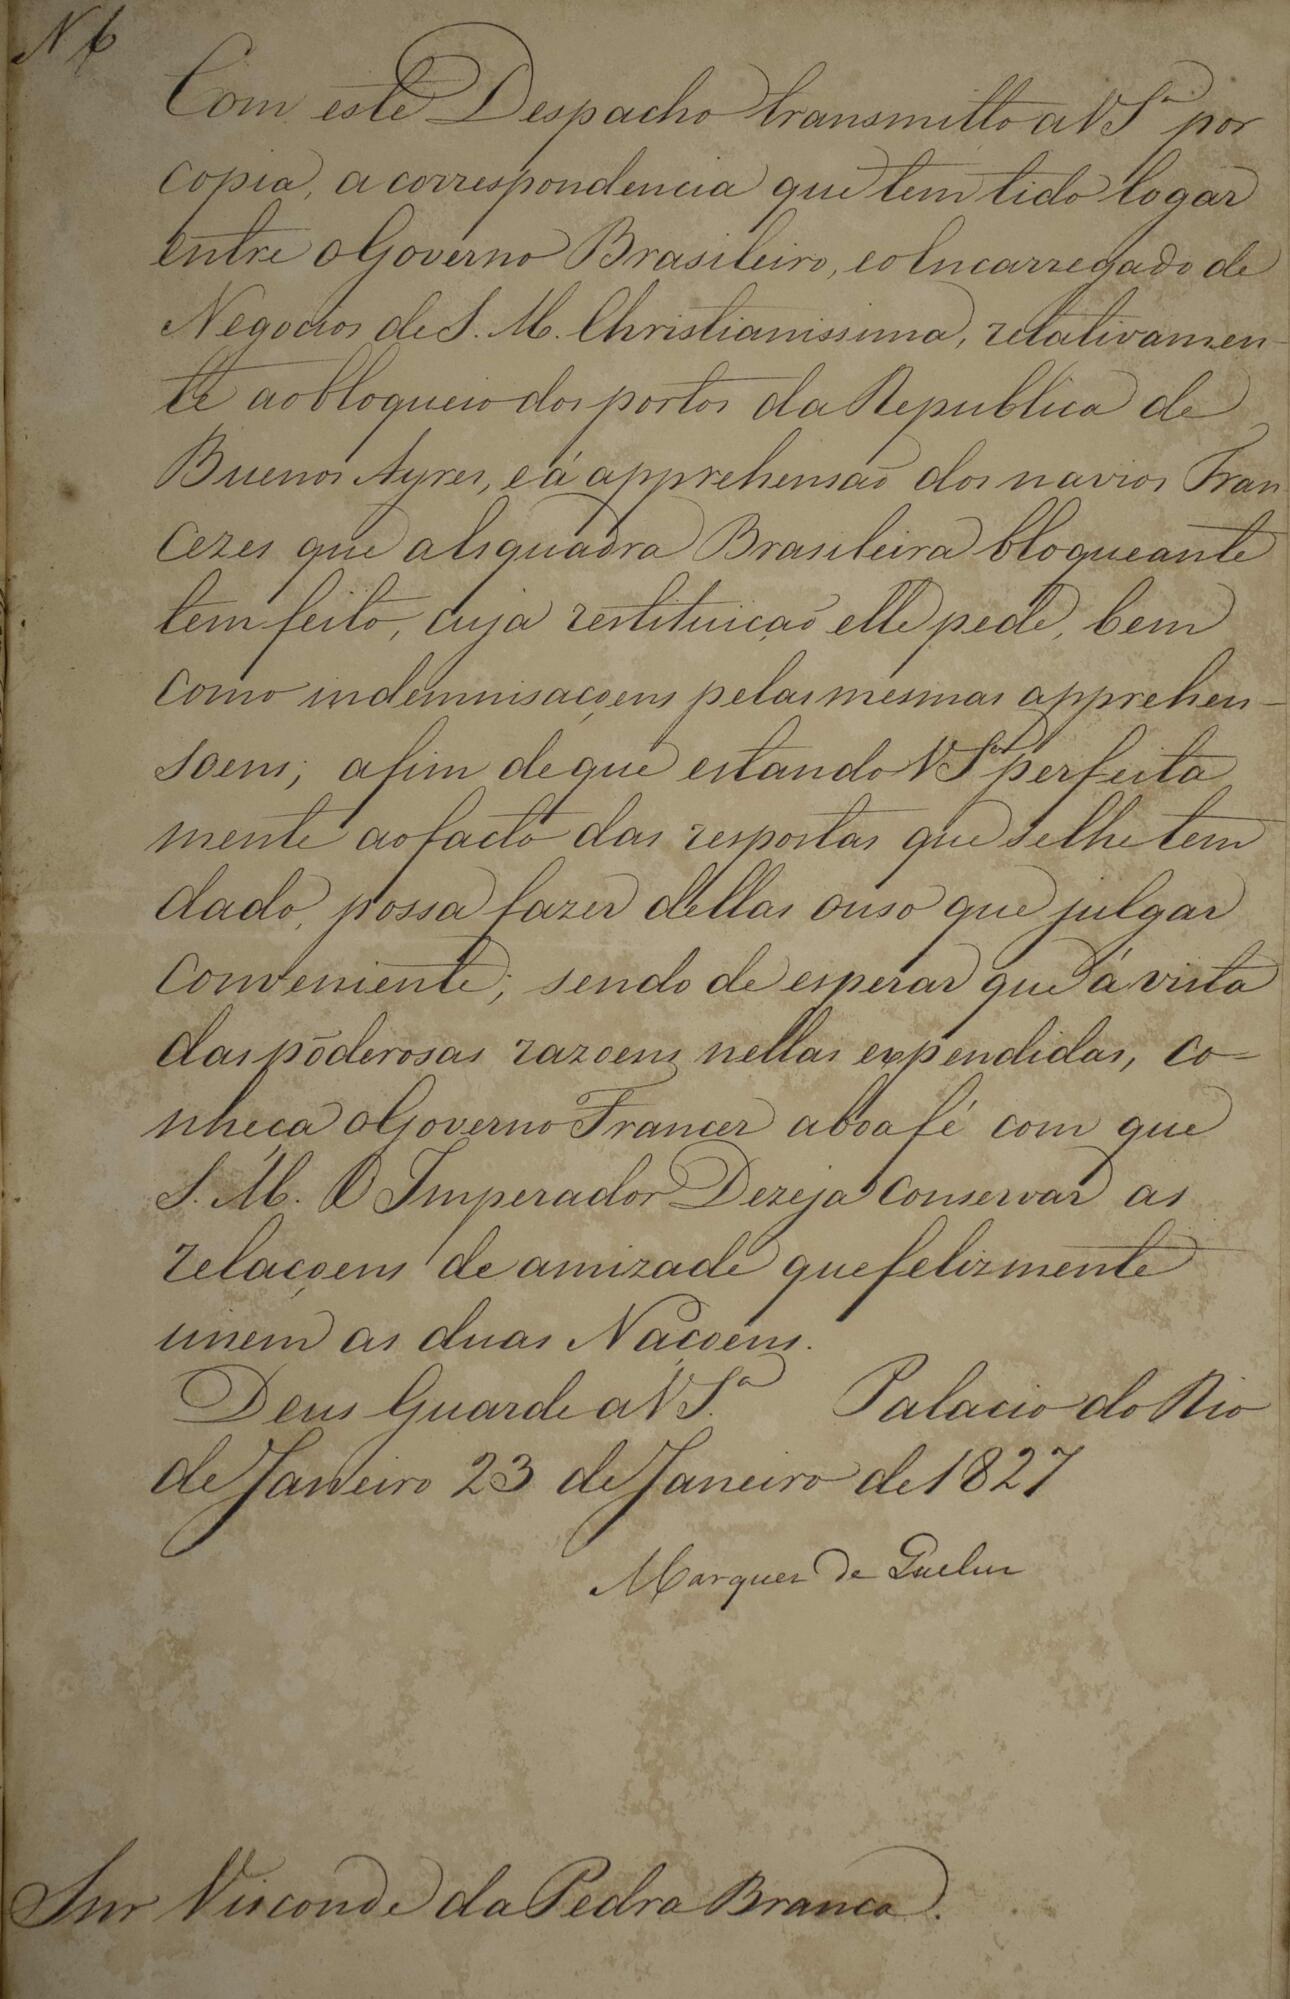 N 6
Com este Despacho transmitto a V Sª por
copia, a correspondencia que tem tido logar
entre o Governo Brasileiro, e o Encarregado de
Negocios de S. M. Christianissima, relativamen-
te ao bloqueio dos portos da Republica de
Buenos Ayres, e á apprehensaõ dos navios Fran
cezes que a Esquadra Brasileira bloqueante
tem feito, cuja restituiçaõ elle pede, bem
como indemnisaçoens pelas mesmas apprehen-
soens; afim de que estando V Sª perfeita
mente ao facto das respostas que se lhe tem
dado, possa fazer dellas o uso que julgar
conveniente; sendo de esperar que á vista
das poderosas razoens nellas expendidas, co-
nheça o Governo Francez a boa fé com que
S. M. O Imperador Dezeja conservar as
relaçoens de amizade que felizmente
unem as duas Naçoens.
Deus Guarde a V S.ª Palacio do Rio
de Janeiro 23 de Janeiro de 1827
Marquez de Queluz
Snr Visconde da Pedra Branca.